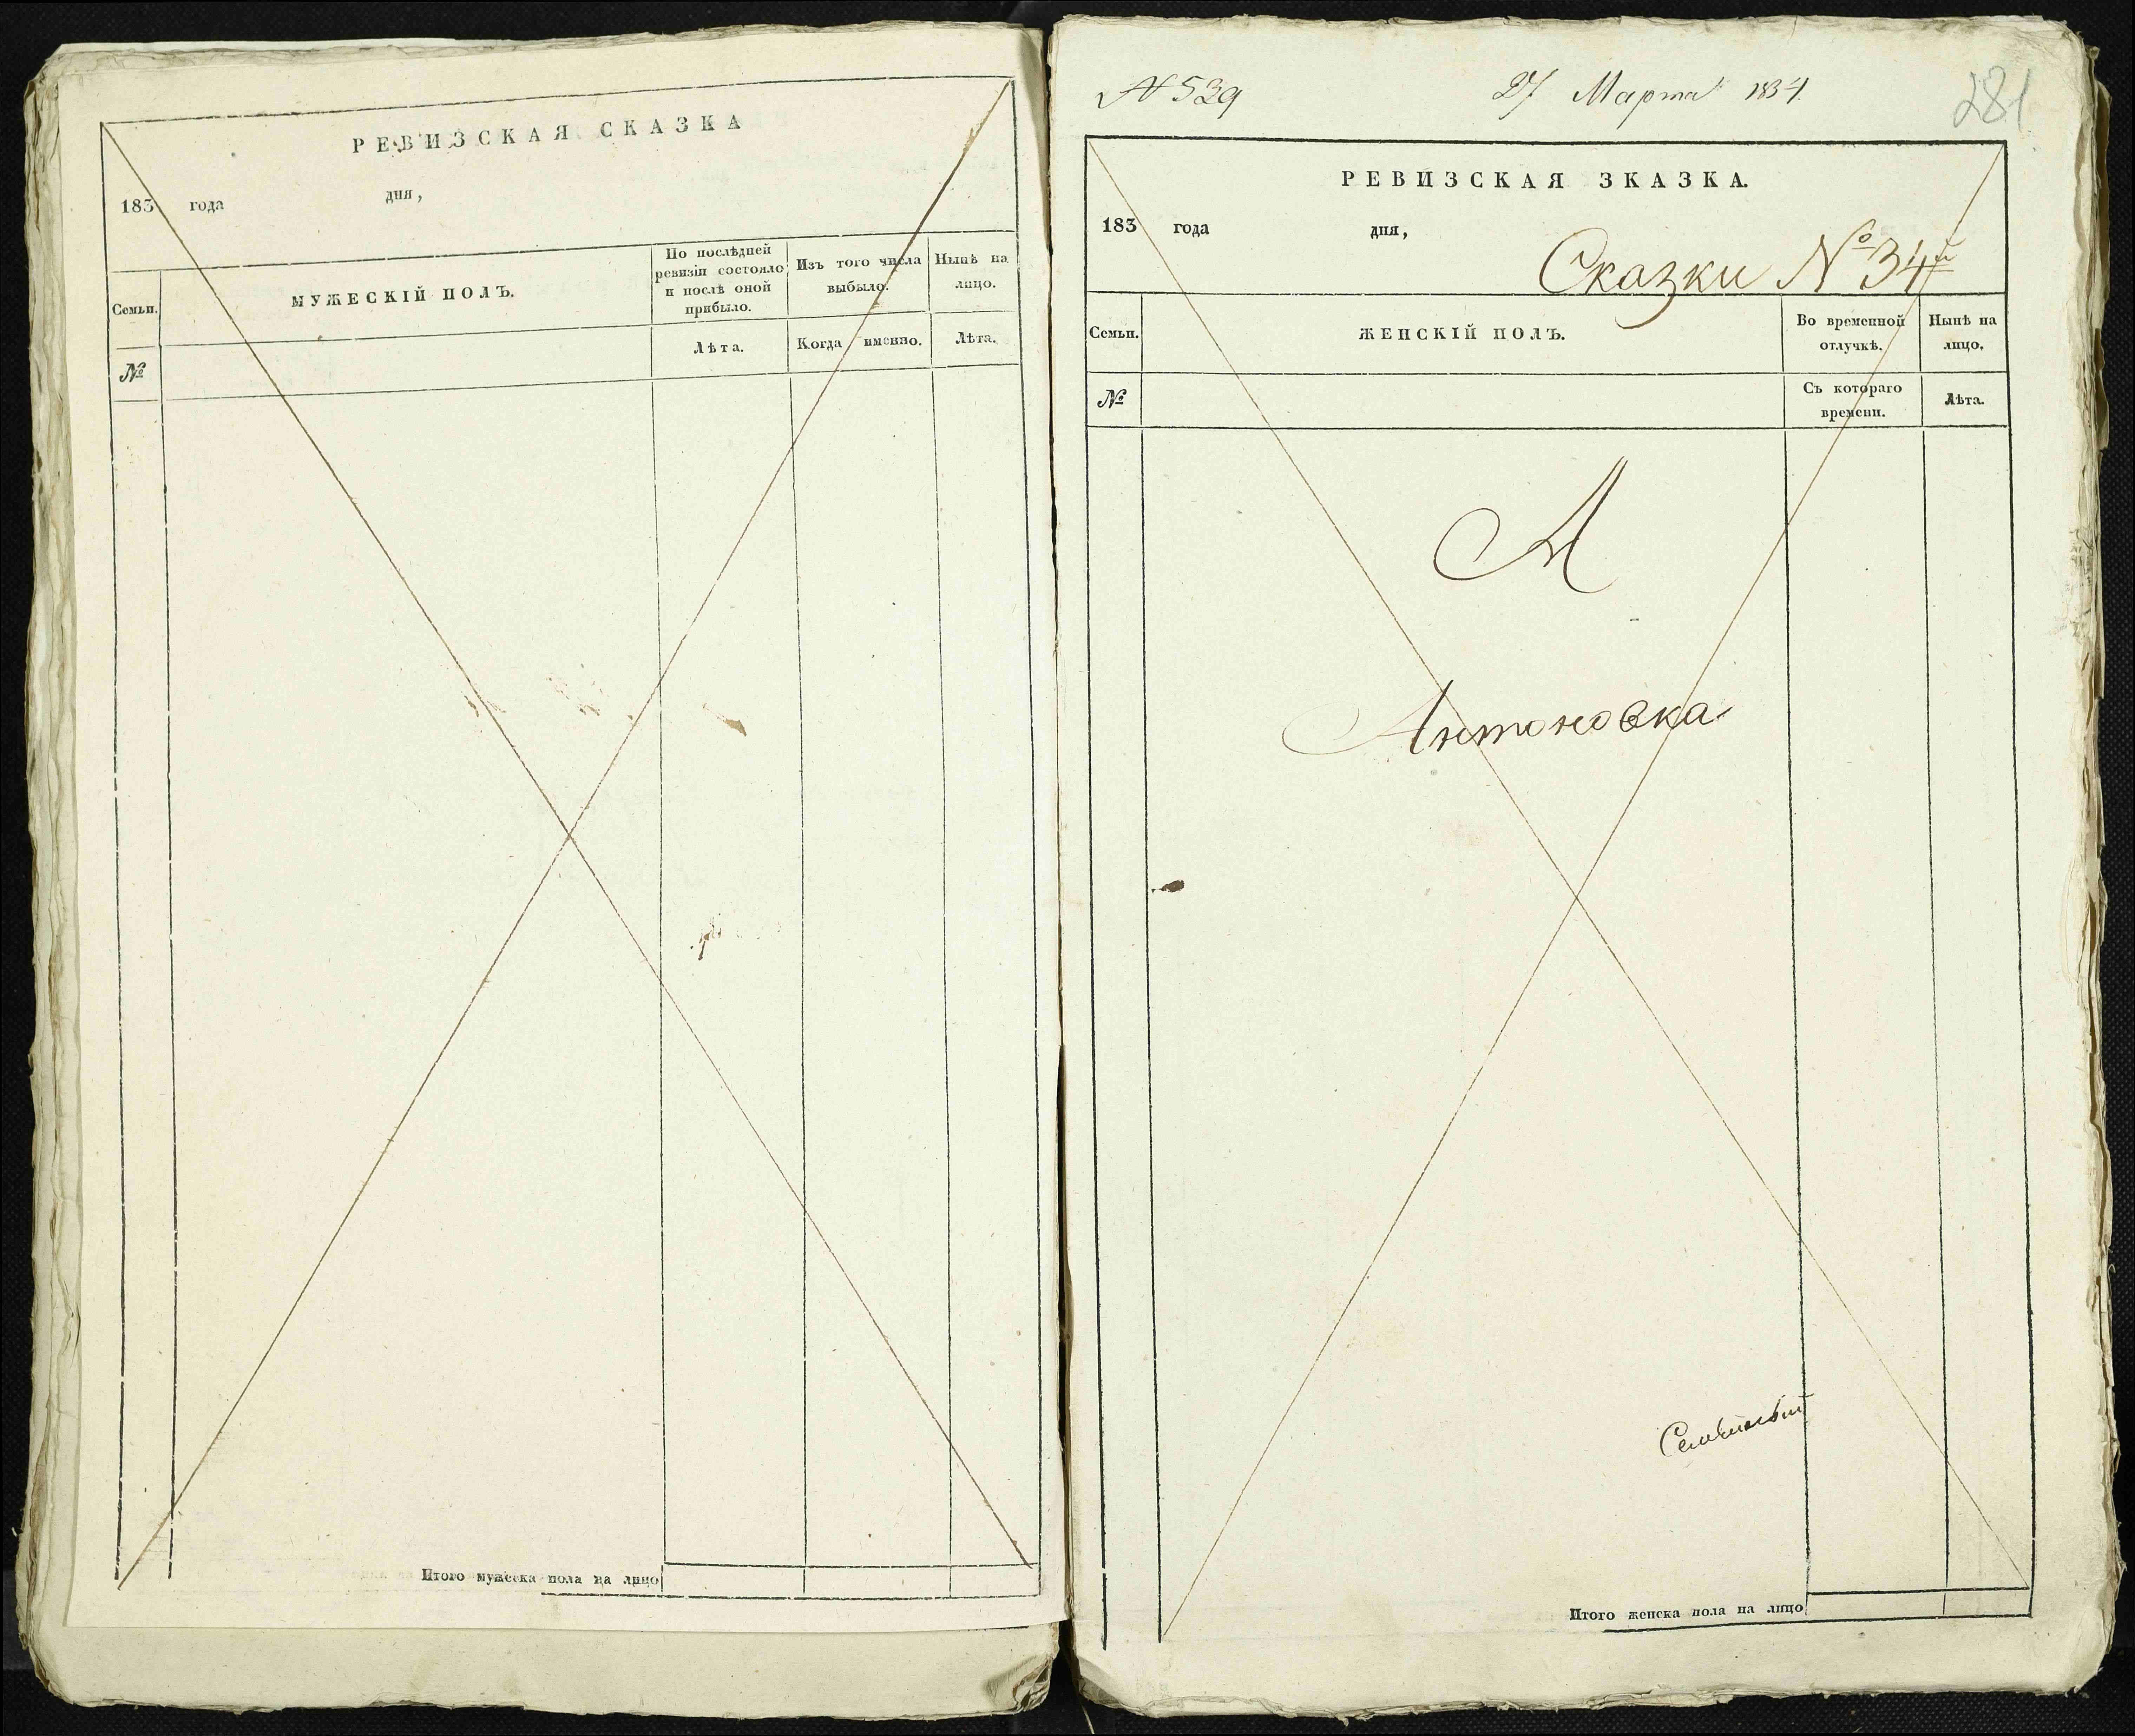 РЕВИЗСКАЯ СКАЗКА
183 года дня,
Семьи.
МУЖЕСКІЙ ПОЛЪ.
По послѣдней
ревизіи состояло
и послѣ оной
прибыло.
Изъ того числа
выбыло.
Нынѣ на
лицо.
№
Лѣта.
Когда именно.
Лѣта.
Итого мужеска пола на лицо
N 539 27 Марта 1834. 281
РЕВИЗСКАЯ ЗКАЗКА.
183 года дня,
Сказки № 34й
Семьи.
ЖЕНСКІЙ ПОЛЪ.
Во временной
отлучкѣ.
Нынѣ на
лицо.
№
Съ котораго
времени.
Лѣта.
А
Антоновка
Итого женска пола на лицо